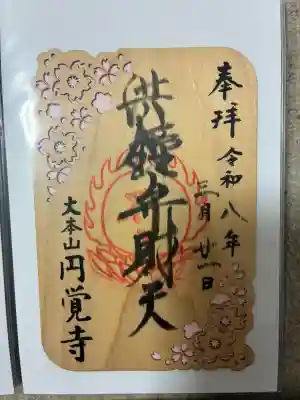 奉拝 令和八年
三月廿一日
洪鐘弁財天
大本山円覚寺